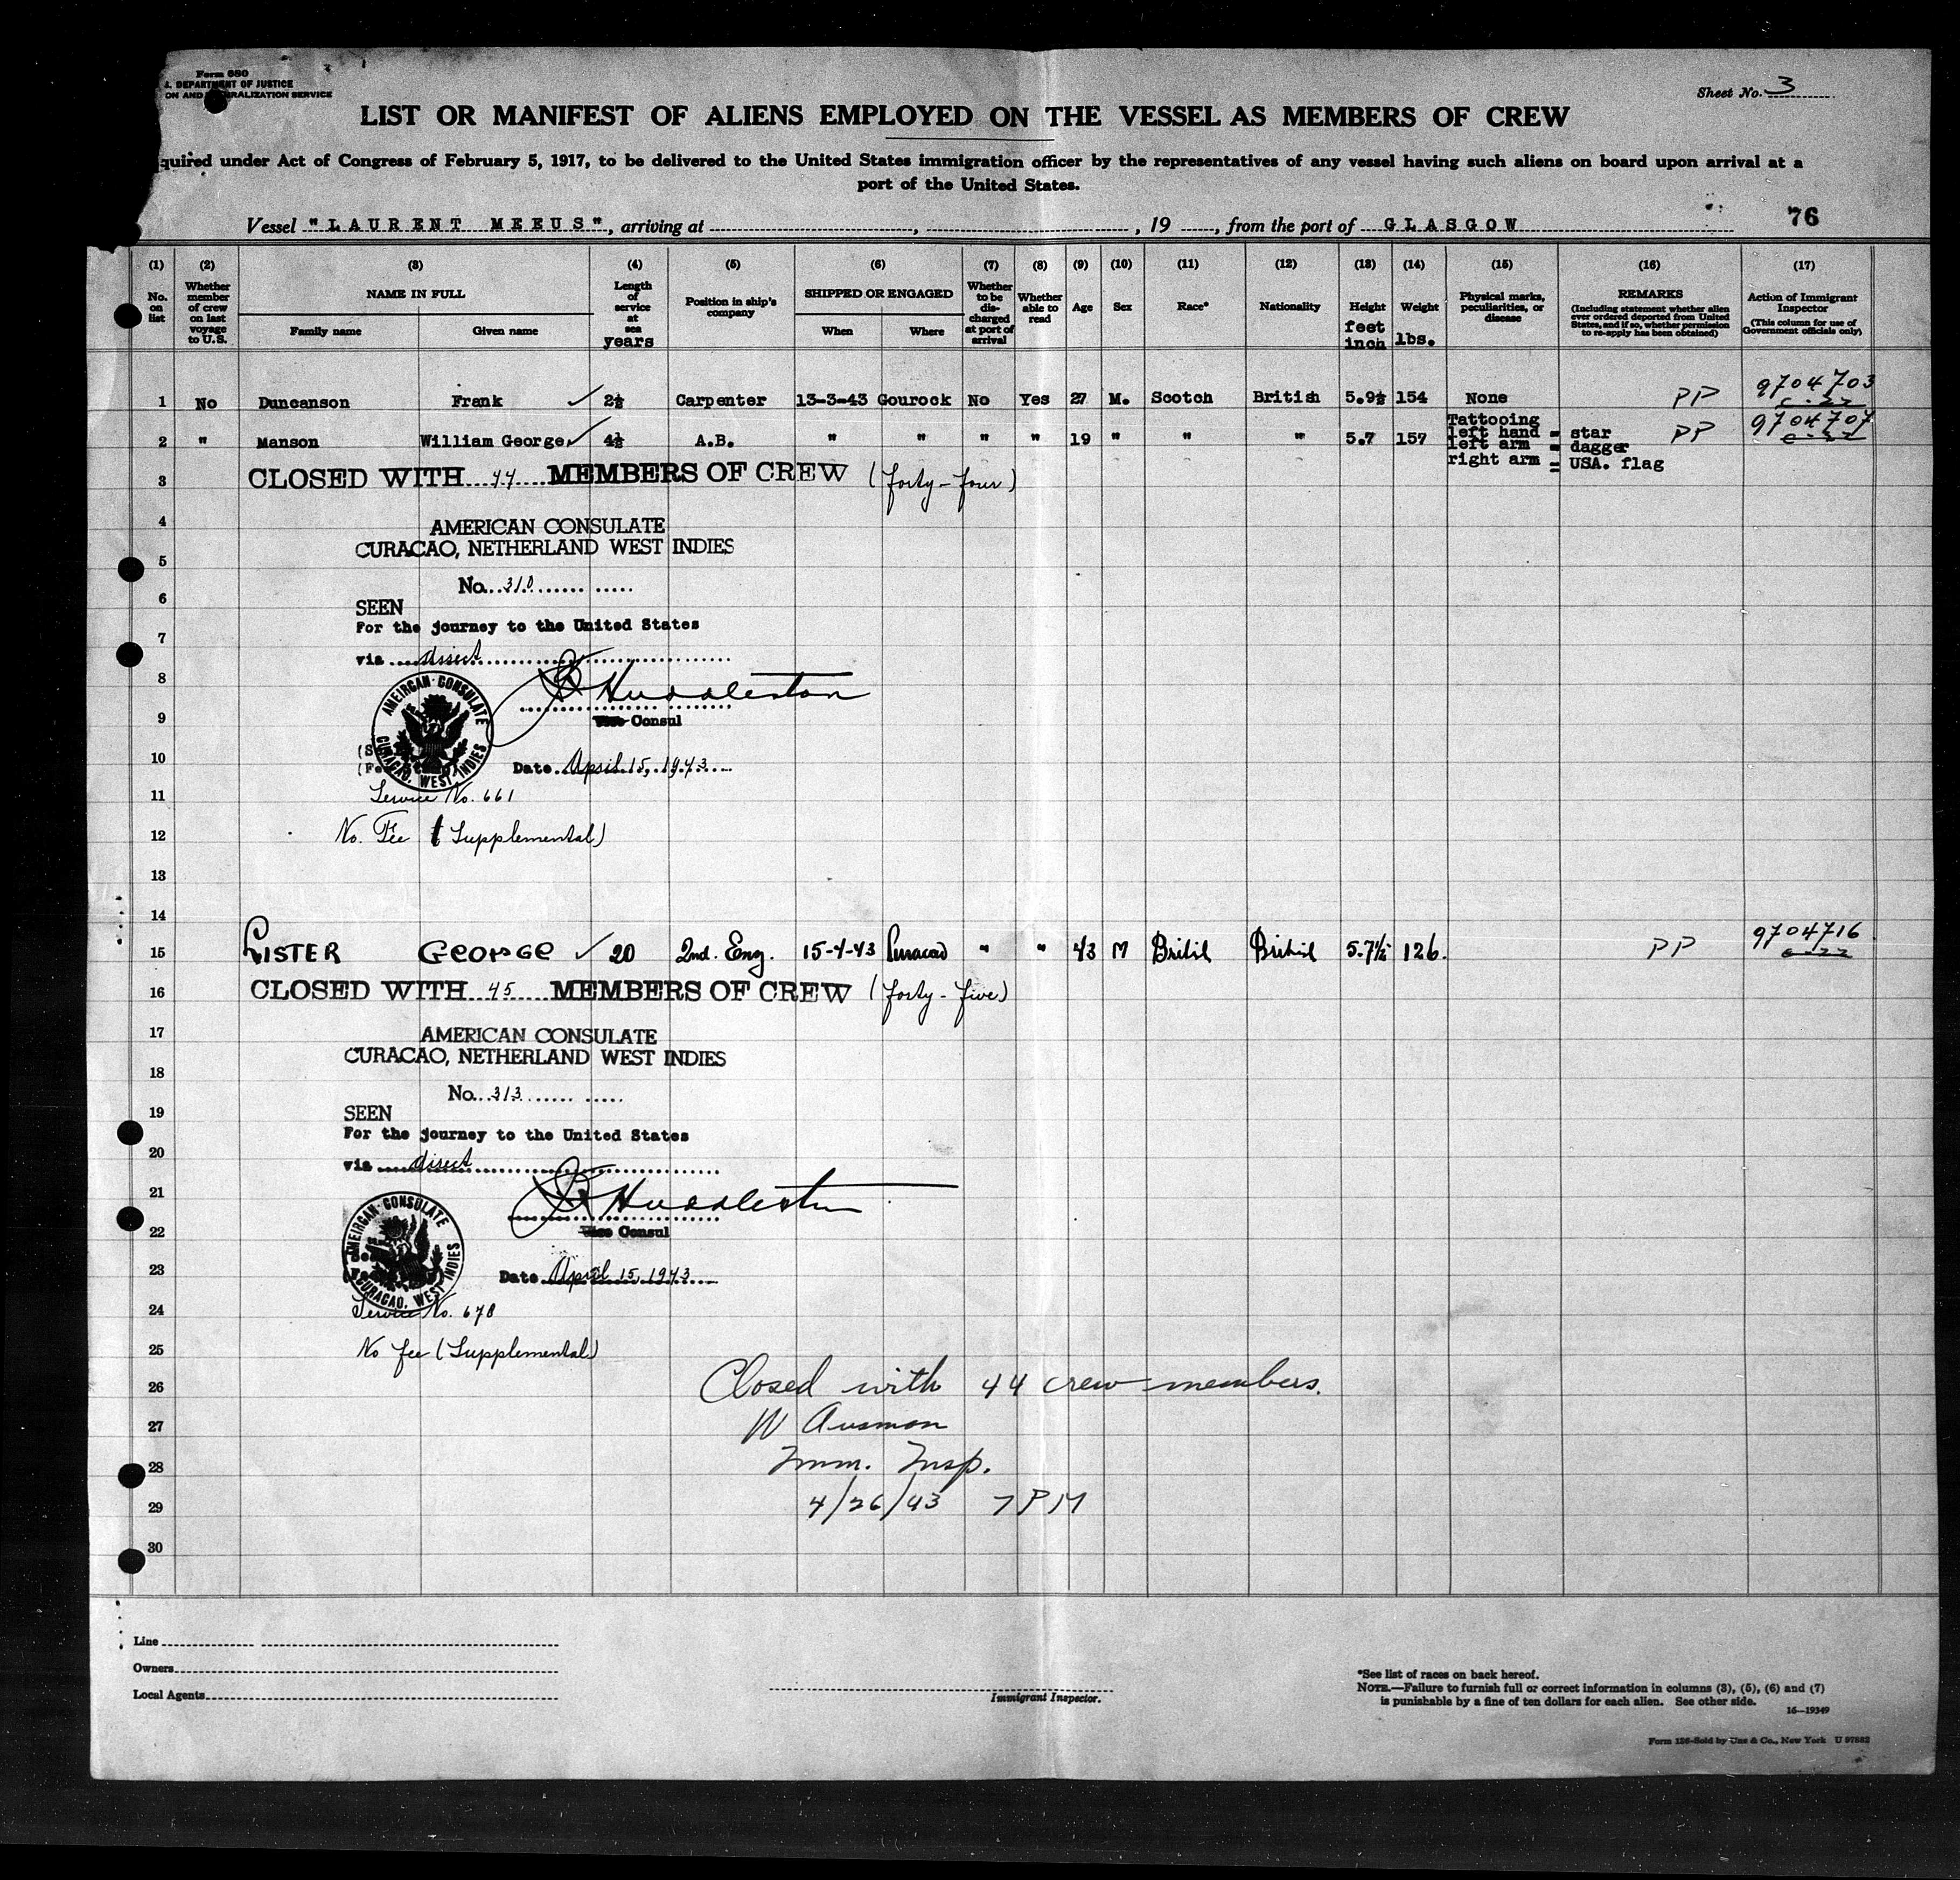 Form 680
DEPARTMENT OF JUSTICE
ON AND NATURALIZATION SERVICE
Sheet No. 3
LIST OR MANIFEST OF ALIENS EMPLOYED ON THE VESSEL AS MEMBERS OF CREW
quired under Act of Congress of February 5, 1917, to be delivered to the United States immigration officer by the representatives of any vessel having such aliens on board upon arrival at a
port of the United States.
Vessel "LAURENT MEEUS", arriving at , , 19 , from the port of GLASGOW 76
(1) (2) (3) (4) (5) (6) (7) (8) (9) (10) (11) (12) (13) (14) (15) (16) (17)
No. on list
Whether member of crew on last voyage to U.S.
NAME IN FULL
Family name
Given name
Length of service at sea years
Position in ship's company
SHIPPED OR ENGAGED
When
Where
Whether to be discharged at port of arrival
Whether able to read
Age
Sex
Race*
Nationality
Height feet inch
Weight lbs.
Physical marks, peculiarities, or disease
REMARKS
(Including statement whether alien ever ordered deported from United States, and if so, whether permission to re-apply has been obtained)
Action of Immigrant Inspector
(This column for use of Government officials only)
1 No Duncanson Frank ✓ 2½ Carpenter 13-3-43 Gourock No Yes 27 M. Scotch British 5.9½ 154 None PP 9704703
2 " Manson William George ✓ 4½ A.B. " " " " 19 " " " 5.7 157 Tattooing PP 9704707
left hand = star
left arm = dagger
right arm = USA. flag
3 CLOSED WITH 44 MEMBERS OF CREW (forty-four)
4 AMERICAN CONSULATE
CURACAO, NETHERLAND WEST INDIES
5
No. 310
6 SEEN
For the journey to the United States
7
via direct
8 Huddleston
9 Vice Consul
AMEIRCAN CONSULATE
CURACAO, WEST INDIES
10 Date April 15, 1943
11 Service No. 661
12 No. Fee (Supplemental)
13
14
15 LISTER GEORGE ✓ 20 2nd. Eng. 15-4-43 Curacao " " 43 M British British 5.7½ 126. PP 9704716
16 CLOSED WITH 45 MEMBERS OF CREW (forty-five)
17 AMERICAN CONSULATE
CURACAO, NETHERLAND WEST INDIES
18
No. 313
19 SEEN
For the journey to the United States
20
via direct
21 Huddleston
22 Vice Consul
AMEIRCAN CONSULATE
CURACAO, WEST INDIES
23 Date April 15, 1943
24 Service No. 678
25 No fee (Supplemental)
26 Closed with 44 crew members.
27 W Ausman
28 Imm. Insp.
29 4/26/43 7 PM
30
Line
Owners
Local Agents
Immigrant Inspector.
*See list of races on back hereof.
NOTE.—Failure to furnish full or correct information in columns (3), (5), (6) and (7)
is punishable by a fine of ten dollars for each alien. See other side.
16—19349
Form 126-Sold by Unz & Co., New York U 97882